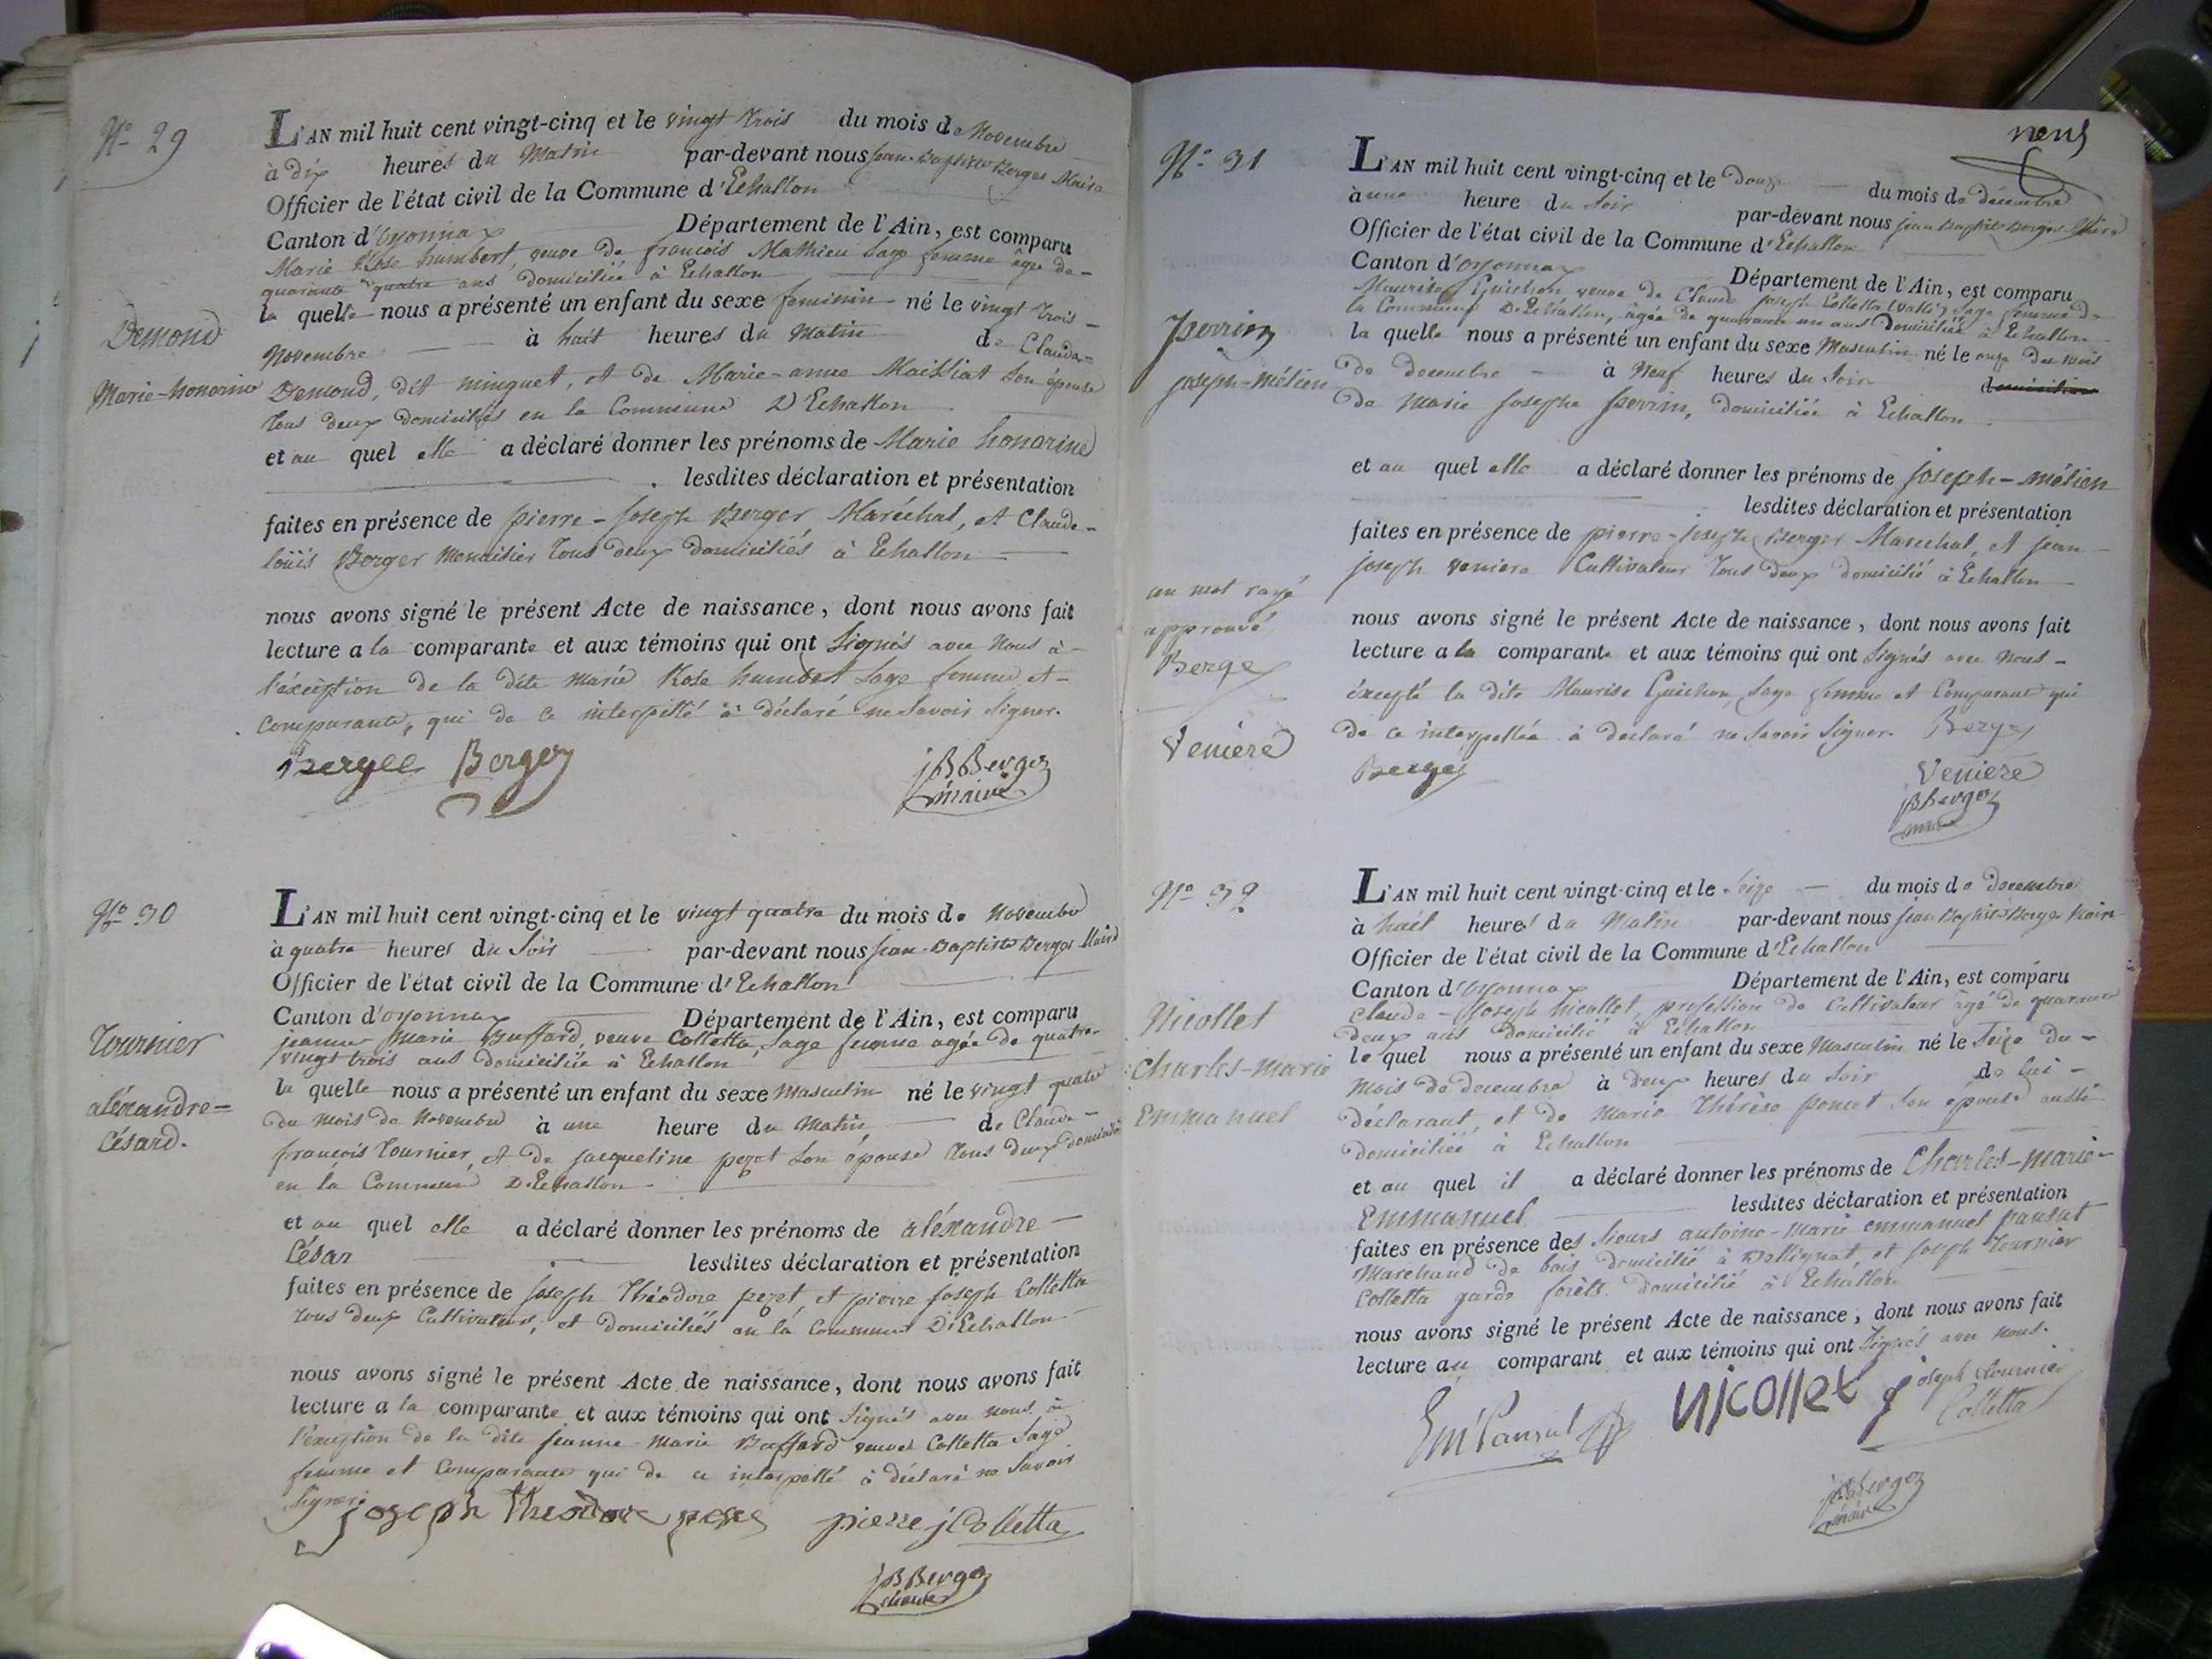 N.o 29
L'AN mil huit cent vingt-cinq et le vingt trois du mois de Novembre
à dix heures du Matin par-devant nous Jean-Baptiste Berger Maire
Officier de l'état civil de la Commune d'Echallon
Canton d'Oyonnax Département de l'Ain, est comparu
Marie Rose humbert, veuve de françois Mathieu Sage femme âgée de
quarante quatre ans domiciliée à Echallon
la quelle nous a présenté un enfant du sexe feminin né le vingt trois
Demond
Novembre à huit heures du Matin de Claude
Marie-honorine
Demond, dit minguet, et de Marie-anne Maissiat Son épouse
tous deux domiciliés en la Commune D'Echallon
et au quel elle a déclaré donner les prénoms de Marie honorine
lesdites déclaration et présentation
faites en présence de pierre-joseph Berger Maréchal, et Claude-
loüis Berger Menuisier tous deux domiciliés à Echallon
nous avons signé le présent Acte de naissance, dont nous avons fait
lecture a la comparante et aux témoins qui ont Signés avec Nous à
l'éxception de la dite Marie Rose humbert Sage femme et
comparante, qui de ce interpellé à déclaré ne Savoir Signer.
Berger Berger JB Berger
maire
N.o 30
L'AN mil huit cent vingt-cinq et le vingt quatre du mois de Novembre
à quatre heures du Soir par-devant nous Jean-Baptiste Berger Maire
Officier de l'état civil de la Commune d'Echallon
Canton d'oyonnax Département de l'Ain, est comparu
jeanne Marie Buffard, veuve Colletta, Sage femme agée de quatre-
vingt trois ans domiciliée à Echallon
Tournier
la quelle nous a présenté un enfant du sexe Masculin né le vingt quatre
aléxandre=
du mois de Novembre à une heure du Matin de Claude-
césard.
françois Tournier, et de jacqueline pezet Son épouse tous deux domiciliés
en la Commune D'Echallon
et au quel elle a déclaré donner les prénoms de aléxandre
César lesdites déclaration et présentation
faites en présence de joseph Théodore pezet et pierre joseph Colletta
tous deux Cultivateurs, et domiciliés en la Commune D'Echallon
nous avons signé le présent Acte de naissance, dont nous avons fait
lecture a la comparante et aux témoins qui ont Signés avec nous à
l'éxception de la dite jeanne Marie Buffard veuve Colletta Sage
femme et Comparante qui de ce interpellé à déclaré ne Savoir
Signer.
joseph theodore peze pierre j Colletta
JB Berger
maire
neuf
N.o 31
L'AN mil huit cent vingt-cinq et le douze du mois de décembre
à une heure du Soir par-devant nous jean Baptiste Berger Maire
Officier de l'état civil de la Commune d'Echallon
Canton d'Oyonnax Département de l'Ain, est comparu
Maurise Guichon veuve de Claude joseph Colletta Sage femme de
la Commune D'Echallon, âgée de quarante un ans Domiciliée à Echallon
perrin
la quelle nous a présenté un enfant du sexe Masculin né le onze du mois
joseph-mélien
de decembre à Neuf heures du Soir
de Marie josephe perrin, domiciliée à Echallon
et au quel elle a déclaré donner les prénoms de joseph-mélien
lesdites déclaration et présentation
faites en présence de pierre-joseph Berger Marechal, et jean
joseph veniere Cultivateur tous deux domicilié à Echallon
un mot rayé
approuvé
Berger
Veniere
nous avons signé le présent Acte de naissance, dont nous avons fait
lecture a la comparante et aux témoins qui ont Signés avec nous
éxcepté la dite Maurise Guichon, Sage femme et Comparante qui
de ce interpellée à declaré ne Savoir Signer. Berger
Berger Veniere
JB Berger
maire
N.o 32
L'AN mil huit cent vingt-cinq et le Seize du mois de decembre
à huit heures du Matin par-devant nous jean Baptiste Berger Maire
Officier de l'état civil de la Commune d'Echallon
Canton d'Oyonnax Département de l'Ain, est comparu
Claude-Joseph Nicollet, profession de Cultivateur âgé de quarante
deux ans domicilié à Echallon
Nicollet
Charles-marie
Emmanuel
le quel nous a présenté un enfant du sexe Masculin né le Seize du
Mois de decembre à deux heures du Soir de lui
déclarant, et de Marie Thérèse poncet Son épouse aussi
domiciliée à Echallon
et au quel il a déclaré donner les prénoms de Charles-marie-
Emmanuel lesdites déclaration et présentation
faites en présence des Sieurs antoine-Marie emmanuel pansut
Marchand de bois domicilié à Bellignat, et joseph Tournier
Colletta garde forêts domicilié à Echallon
nous avons signé le présent Acte de naissance, dont nous avons fait
lecture au comparant et aux témoins qui ont Signés avec nous.
Em Pansut Nicollet joseph tournier
Colletta
JB Berger
maire